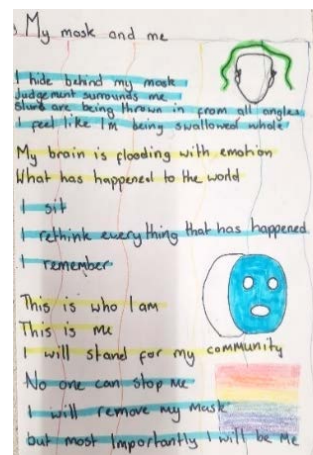 My mask and me
I hide behind my mask
Judgement surrounds me
Slurs are being thrown in from all angles
I feel like I'm being swallowed whole
My brain is flooding with emotion
What has happened to the world
I sit
I rethink everything that has happened
I remember
This is who I am
This is me
I will stand for my community
No one can stop me
I will remove my mask
but most importantly I will be me